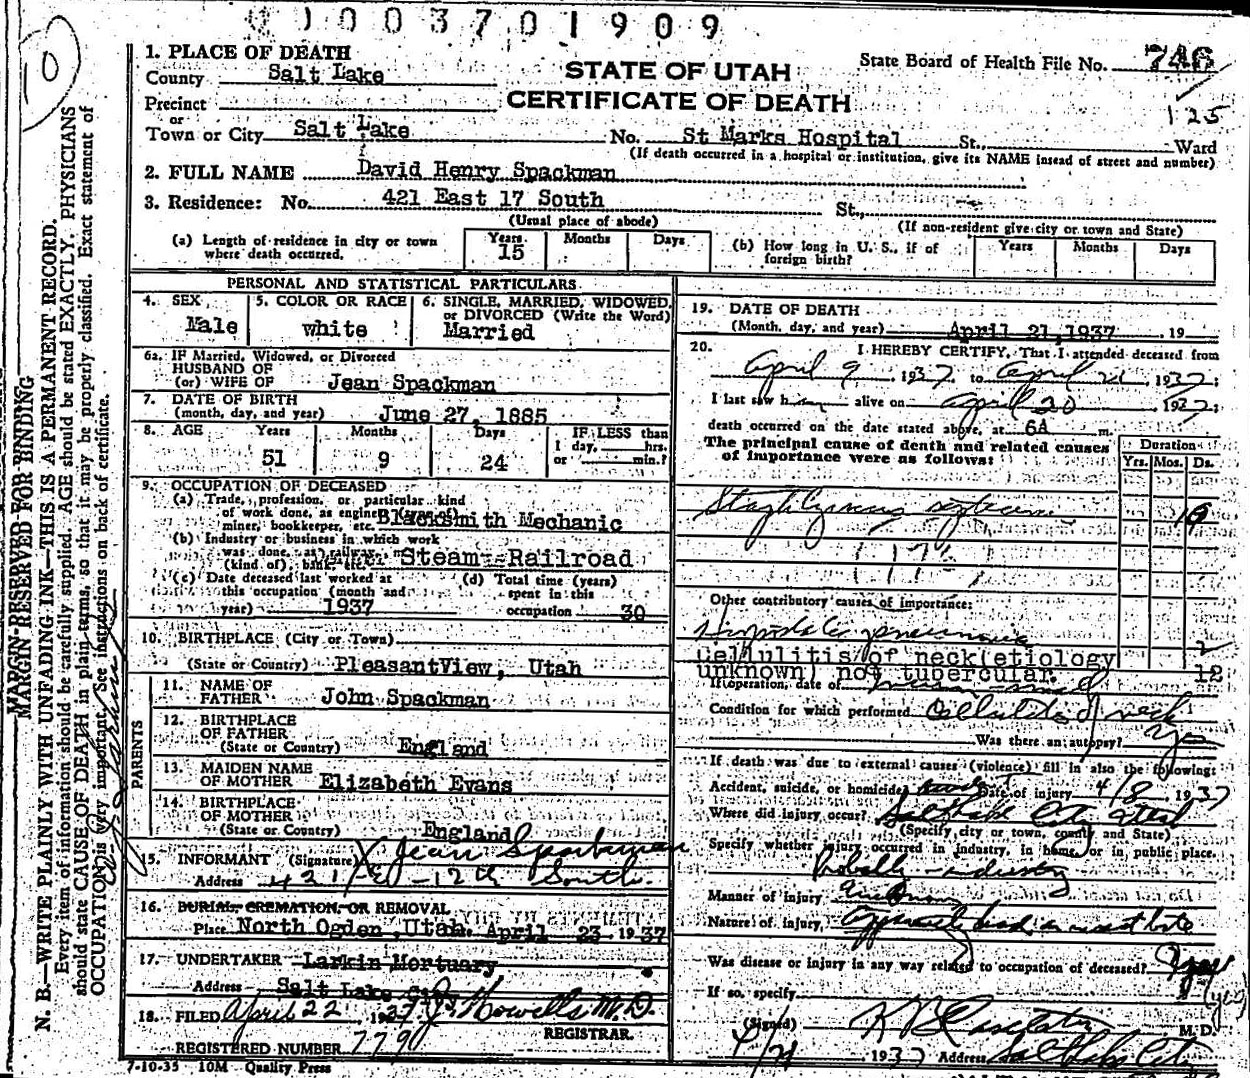 01003701909
10
1. PLACE OF DEATH
County Salt Lake
STATE OF UTAH
CERTIFICATE OF DEATH
State Board of Health File No. 746
125
Precinct
or
Town or City Salt Lake No. St Marks Hospital St., Ward
(If death occurred in a hospital or institution, give its NAME insead of street and number)
2. FULL NAME David Henry Spackman
3. Residence: No. 421 East 17 South St.,
(Usual place of abode) (If non-resident give city or town and State)
(a) Length of residence in city or town where death occurred. Years 15 Months Days
(b) How long in U. S., if of foreign birth? Years Months Days
PERSONAL AND STATISTICAL PARTICULARS
4. SEX Male
5. COLOR OR RACE white
6. SINGLE, MARRIED, WIDOWED, or DIVORCED (Write the Word) Married
6a. IF Married, Widowed, or Divorced
HUSBAND OF
(or) WIFE OF Jean Spackman
7. DATE OF BIRTH
(month, day, and year) June 27, 1885
8. AGE Years 51 Months 9 Days 24 IF LESS than 1 day, hrs. or min.?
9. OCCUPATION OF DECEASED
(a) Trade, profession, or particular kind
of work done, as engineer (type of)
miner, bookkeeper, etc. Blacksmith Mechanic
(b) Industry or business in which work
was done, as railway,
(kind of), bank, etc. Steam-Railroad
(c) Date deceased last worked at
this occupation (month and
year) 1937
(d) Total time (years)
spent in this
occupation 30
10. BIRTHPLACE (City or Town)
(State or Country) PleasantView, Utah
PARENTS
11. NAME OF
FATHER John Spackman
12. BIRTHPLACE
OF FATHER
(State or Country) England
13. MAIDEN NAME
OF MOTHER Elizabeth Evans
14. BIRTHPLACE
OF MOTHER
(State or Country) England
15. INFORMANT (Signature) X Jean Spackman
Address 421 E - 17th South
16. BURIAL, CREMATION, OR REMOVAL
Place North Ogden, Utah. April 23 1937
17. UNDERTAKER Larkin Mortuary,
Address Salt Lake City
18. FILED April 22, 1937 Howells M.D.
REGISTRAR.
REGISTERED NUMBER 779
7-10-35 10M Quality Press
19. DATE OF DEATH
(Month, day, and year) April 21, 1937 19
20. I HEREBY CERTIFY, That I attended deceased from
April 9, 1937, to April 21 1937;
I last saw him alive on April 20 1937;
death occurred on the date stated above, at 6A m.
The principal cause of death and related causes
of importance were as follows:
Duration
Yrs. Mos. Ds.
Other contributory causes of importance:
Hypostatic pneumonia 2
Cellulitis of neck(etiology
unknown) not tubercular. 12
If operation, date of
Condition for which performed Cellulitis of neck
Was there an autopsy? Yes
If death was due to external causes (violence) fill in also the following:
Accident, suicide, or homicide Date of injury 4/8 1937
Where did injury occur? Salt Lake City Utah
(Specify city or town, county and State)
Specify whether injury occurred in industry, in home, or in public place.
Probably - industry
Manner of injury
Nature of injury Apparently insect bite
Was disease or injury in any way related to occupation of deceased? Yes
(yes)
If so, specify
(Signed) M. D.
4/21 1937 Address Salt Lake City
MARGIN-RESERVED FOR BINDING
MARGIN-RESERVED FOR BINDING
N. B.—WRITE PLAINLY WITH UNFADING INK—THIS IS A PERMANENT RECORD.
Every item of information should be carefully supplied. AGE should be stated EXACTLY. PHYSICIANS
should state CAUSE OF DEATH in plain terms, so that it may be properly classified. Exact statement of
OCCUPATION is very important. See instructions on back of certificate.